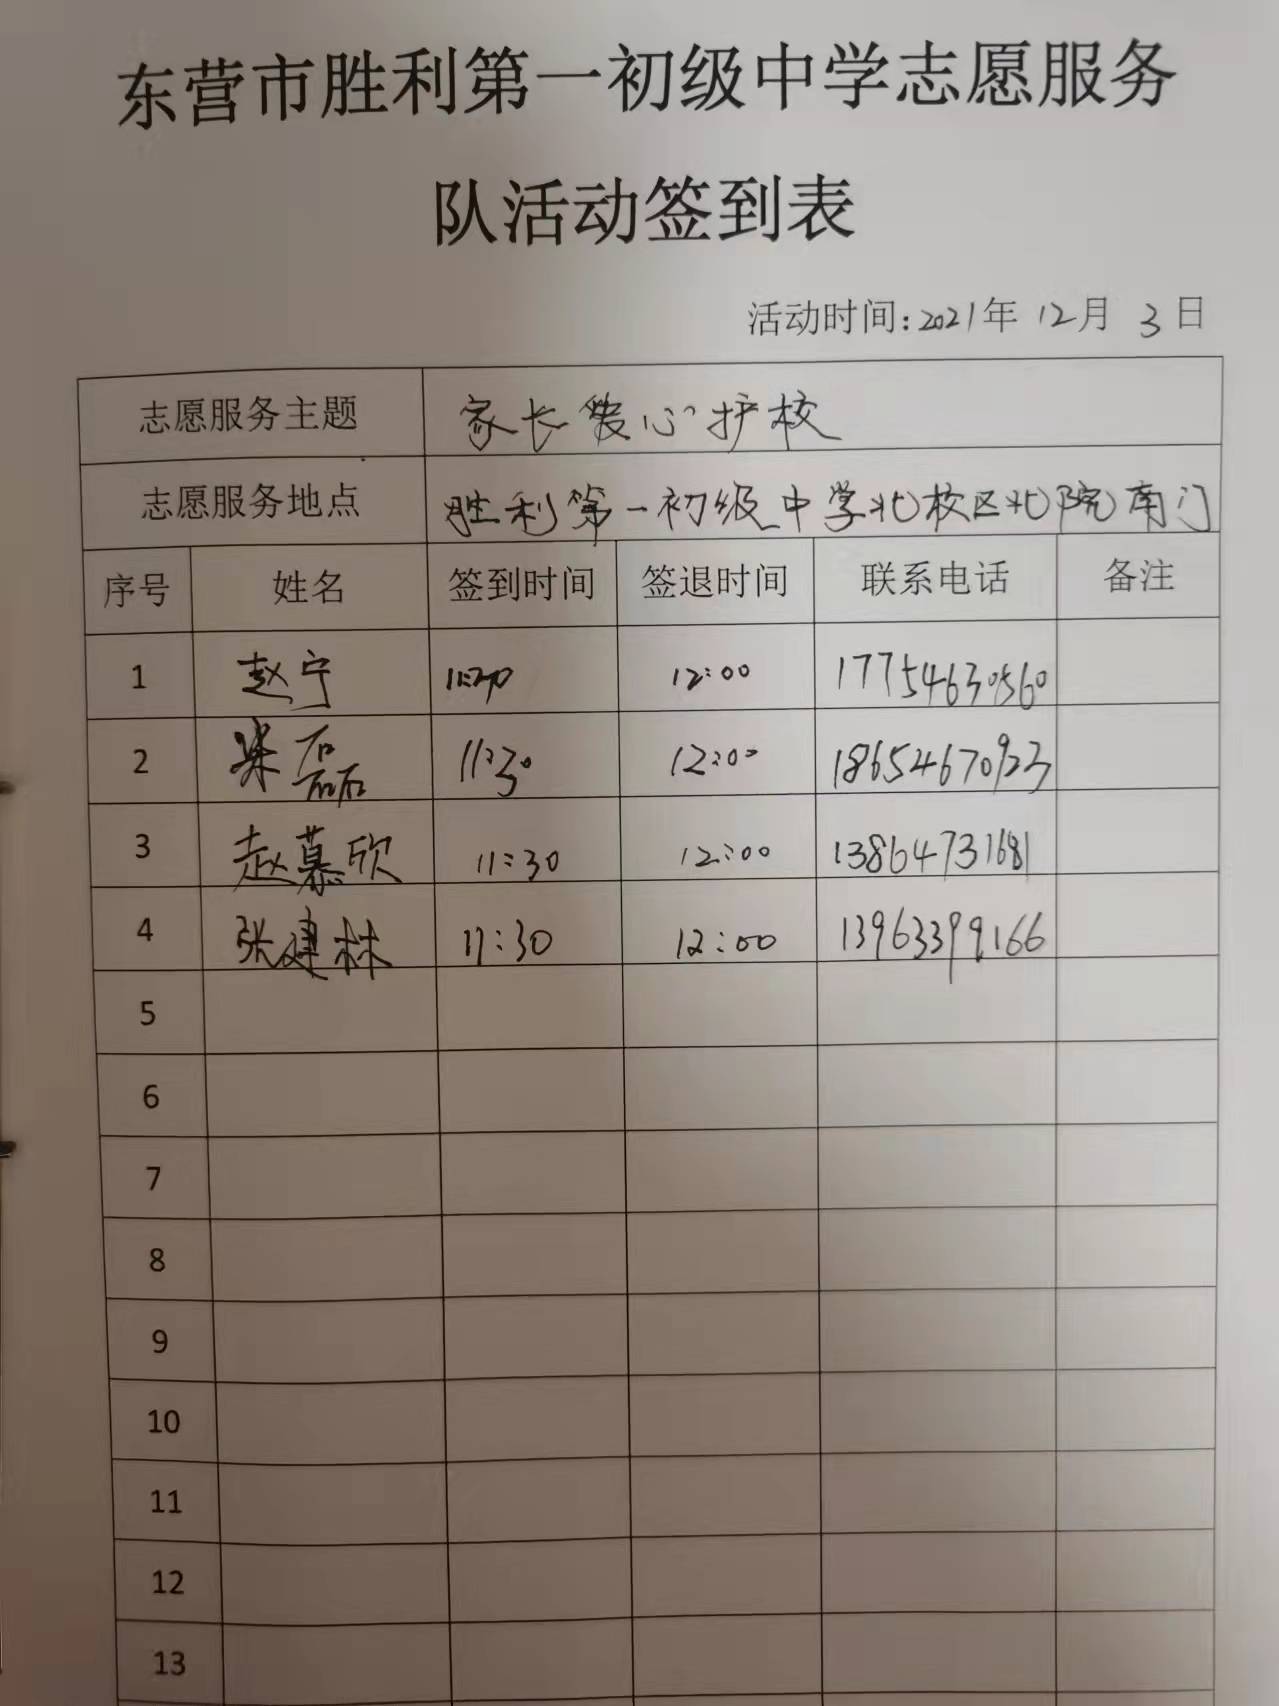 东营市胜利第一初级中学志愿服务
队活动签到表
活动时间:2021年 12月 3日
志愿服务主题 家长爱心护校
志愿服务地点 胜利第一初级中学北校区北院南门
序号 姓名 签到时间 签退时间 联系电话 备注
1 赵宁 12:00 17754630560
2 磊 11:30 12:00 18654670923
3 赵慕欣 11:30 12:00 13864731681
4 张建林 11:30 12:00 13963399166
5
6
7
8
9
10
11
12
13